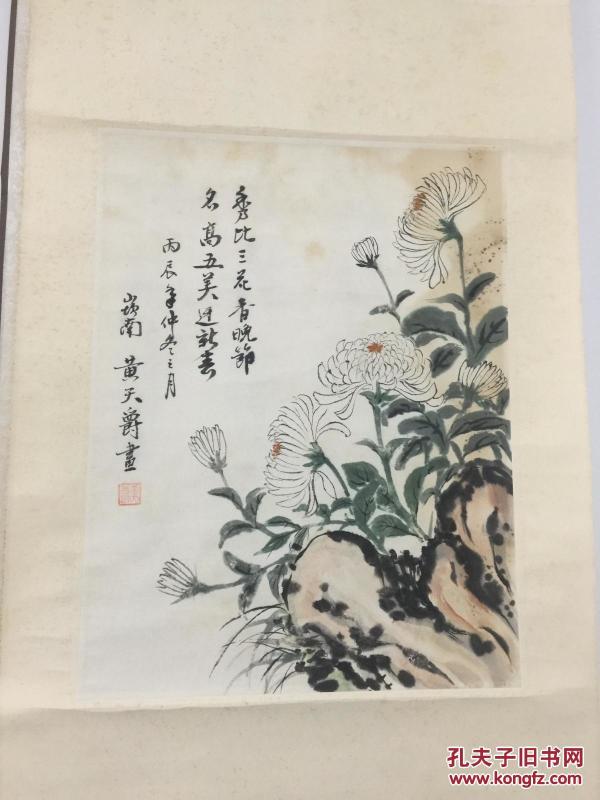 秀比三花香晚節
名高五美迎新春
丙辰年仲冬之月
嶺南 黄天爵畫
孔夫子旧书网
www.kongfz.com